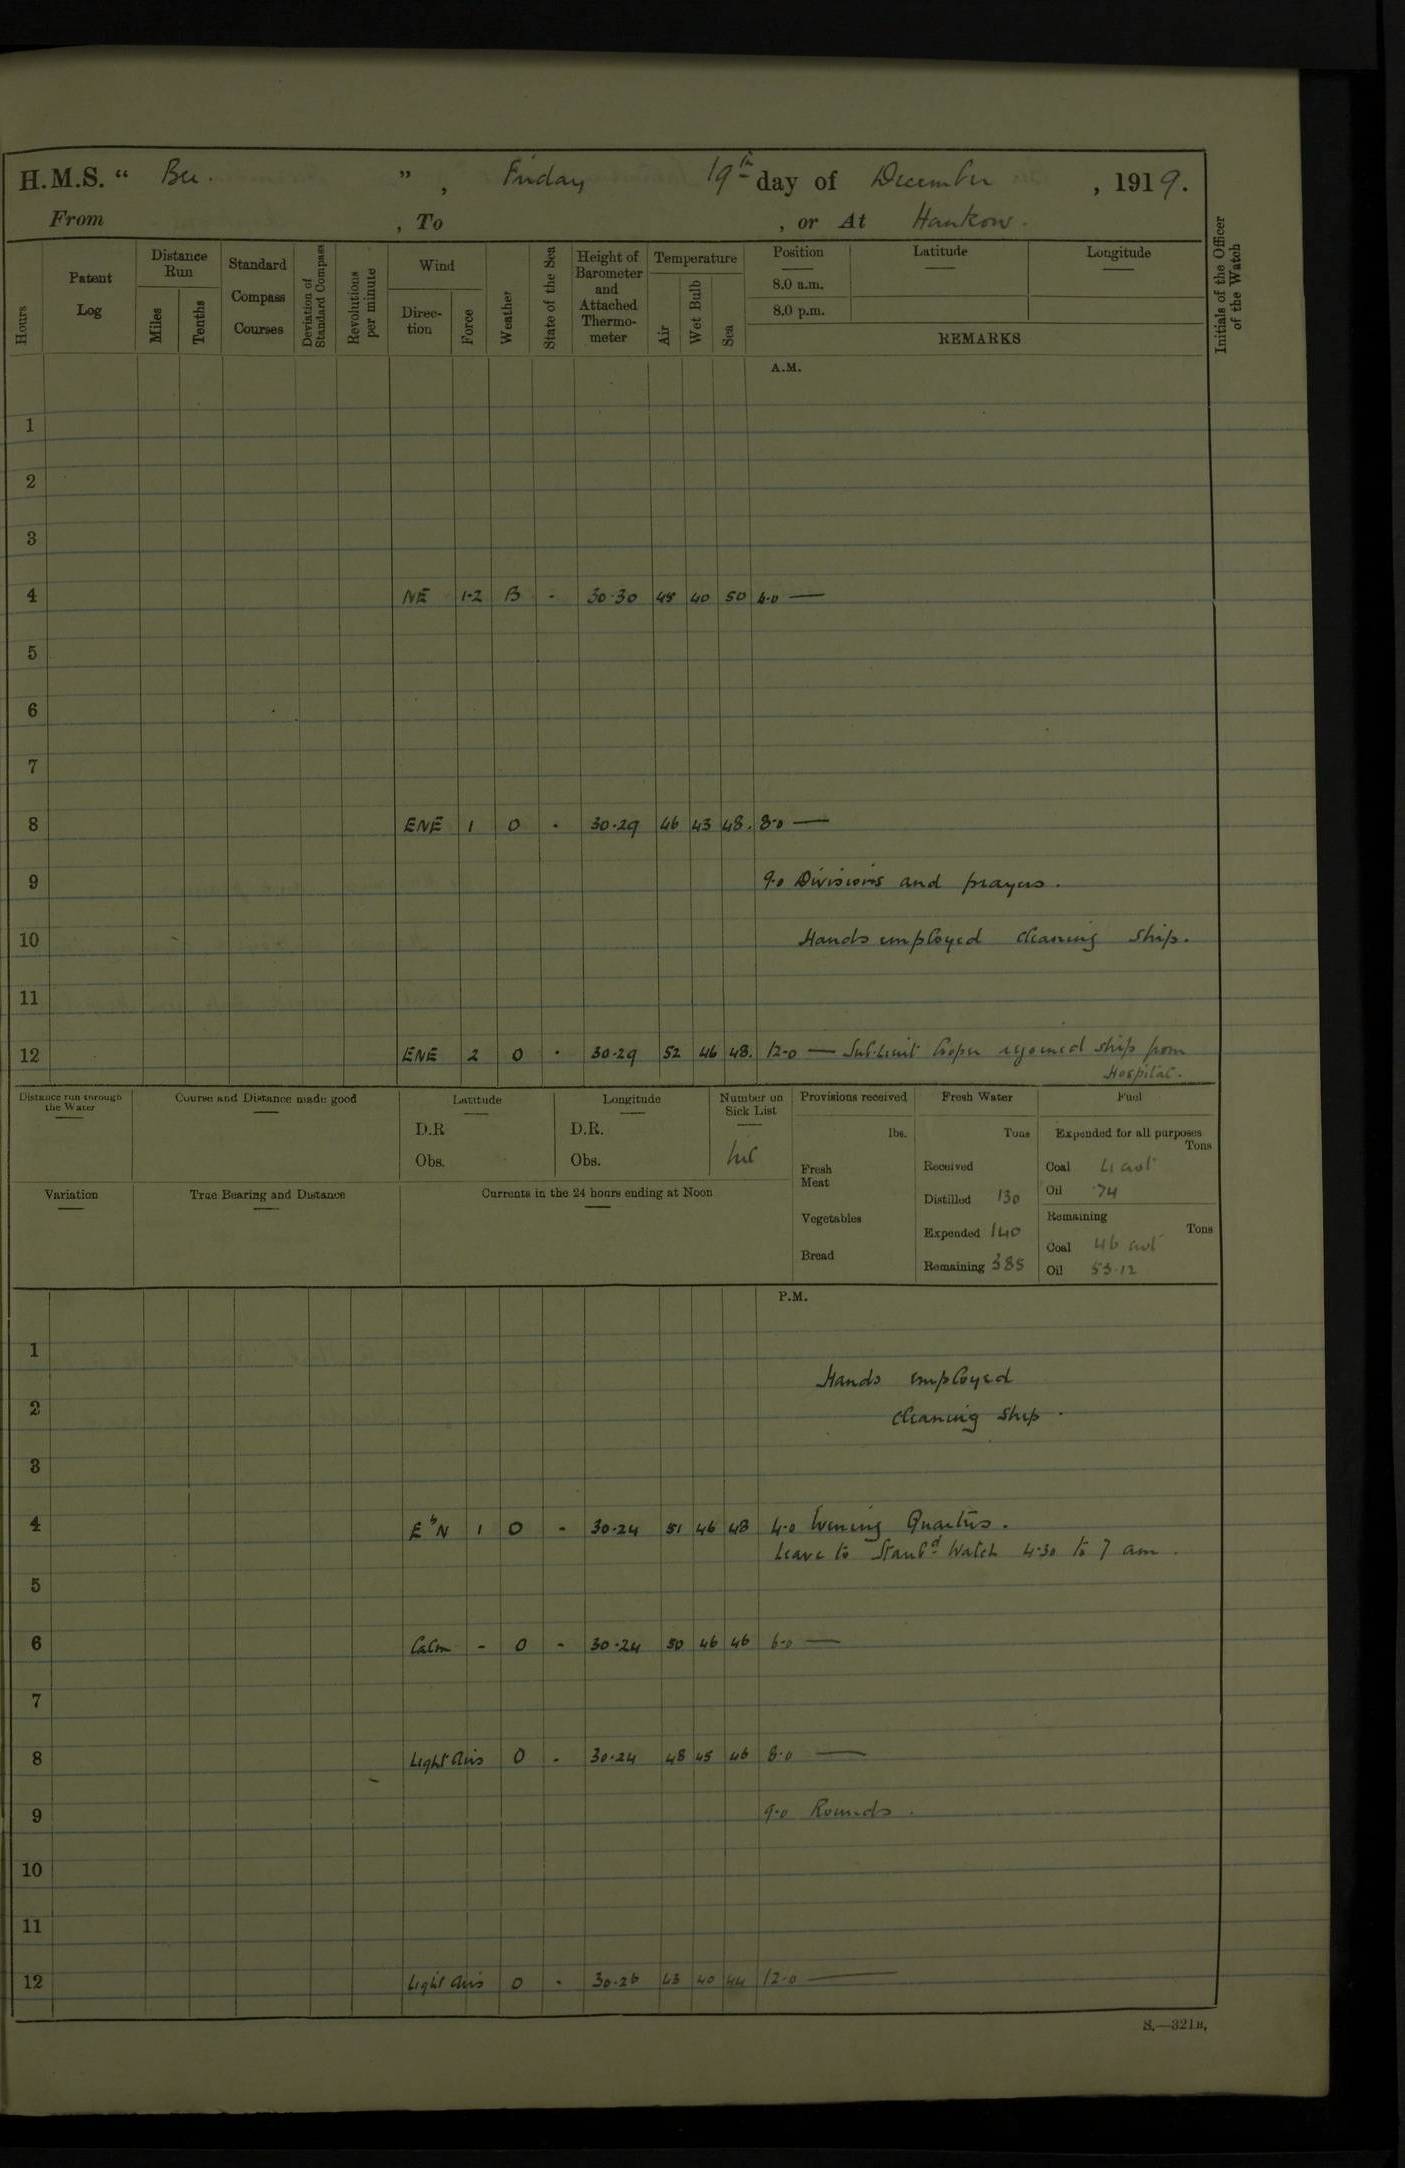 H.M.S. “ Bee. ” , Friday 19th day of December , 1919.
From , To , or At Hankow.
Hours
Patent Log
Distance Run
Miles
Tenths
Standard Compass Courses
Deviation of Standard Compass
Revolutions per minute
Wind
Direction
Force
Weather
State of the Sea
Height of Barometer and Attached Thermometer
Temperature
Air
Wet Bulb
Sea
Position
8.0 a.m.
8.0 p.m.
Latitude
Longitude
REMARKS
Initials of the Officer of the Watch
A.M.
1
2
3
4 NE 1-2 B - 30.30 45 40 50 4.0 —
5
6
7
8 ENE 1 O - 30.29 46 43 48. 8.0 —
9 9.0 Divisions and prayers.
10 Hands employed cleaning ship.
11
12 ENE 2 O - 30.29 52 46 48. 12.0 — Sub. Lieut Cooper rejoined ship from
Hospital.
Distance run through the Water
Course and Distance made good
Latitude
D.R
Obs.
Longitude
D.R.
Obs.
Number on Sick List
Nil
Provisions received
lbs.
Fresh Meat
Vegetables
Bread
Fresh Water
Tons
Received
Distilled 130
Expended 140
Remaining 385
Fuel
Expended for all purposes
Tons
Coal 4 cwt
Oil .74
Remaining
Tons
Coal 46 cwt
Oil 53.12
Variation
True Bearing and Distance
Currents in the 24 hours ending at Noon
P.M.
1
Hands employed
2 cleaning ship.
3
4 E b N 1 O - 30.24 51 46 48 4.0 Evening Quarters.
Leave to Starbd Watch 4.30 to 7 am.
5
6 Calm - O - 30.24 50 46 46 6.0 —
7
8 Light airs O - 30.24 48 45 46 8.0 —
9 9.0 Rounds.
10
11
12 Light airs O - 30.26 43 40 44 12.0 —
S.—321B.